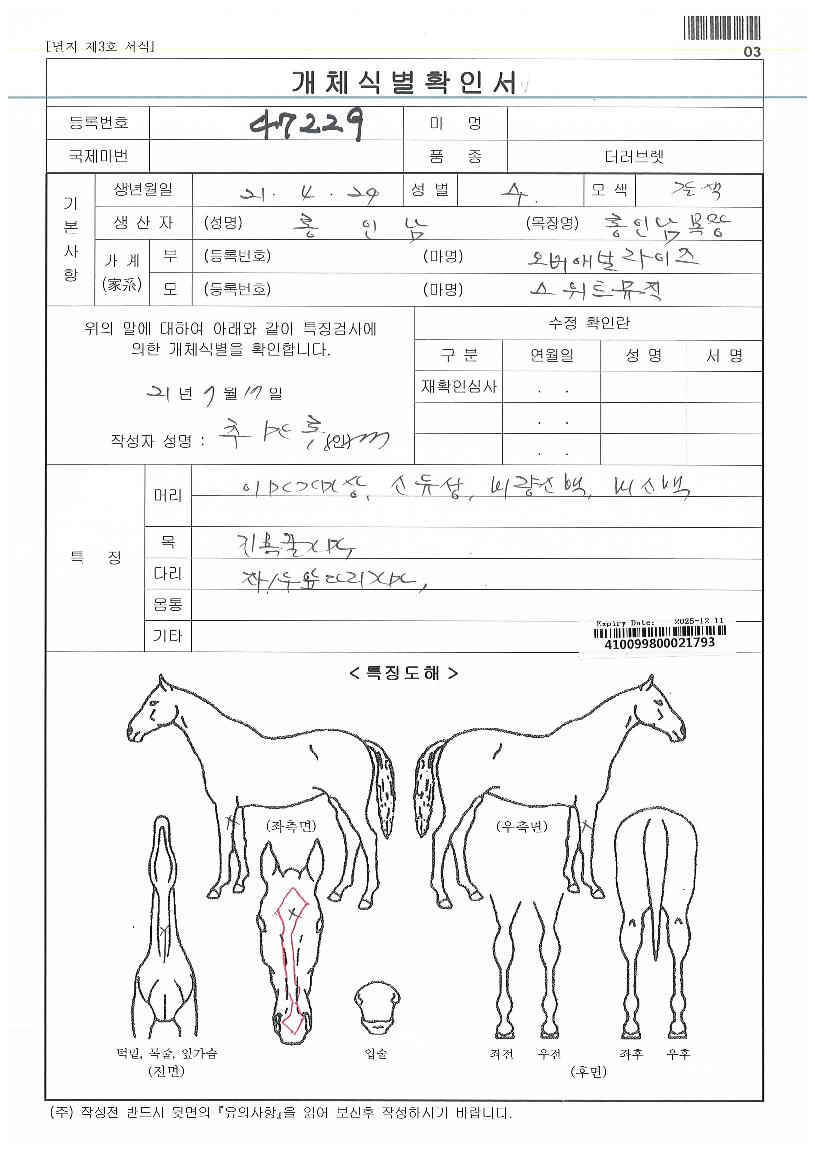 [별지 제3호 서식]
03
개체식별확인서
등록번호 47229 마 명
국제마번 품 종 더러브렛
기본사항
생년월일 21. 4. 29 성별 수 모색 갈색
생산자 (성명) 홍인남 (목장명) 홍인남목장
가계(家系) 부 (등록번호) (마명) 오버애날라이즈
모 (등록번호) (마명) 스위트뮤직
위의 말에 대하여 아래와 같이 특징검사에
의한 개체식별을 확인합니다.
21년 7월 17일
작성자 성명 : (인)
수정 확인란
구분 연월일 성명 서명
재확인심사 . .
. .
. .
특징
머리 유상, 비량선백, 비선백
목
다리
몽통
기타
Expiry Date: 2025-12 11
410099800021793
< 특징도해 >
(좌측면) (우측면)
턱밑, 목줄, 앞가슴
(전면)
입술
좌전 우전 좌후 우후
(후면)
(주) 작성전 반드시 뒷면의 『유의사항』을 읽어 보신후 작성하시기 바랍니다.